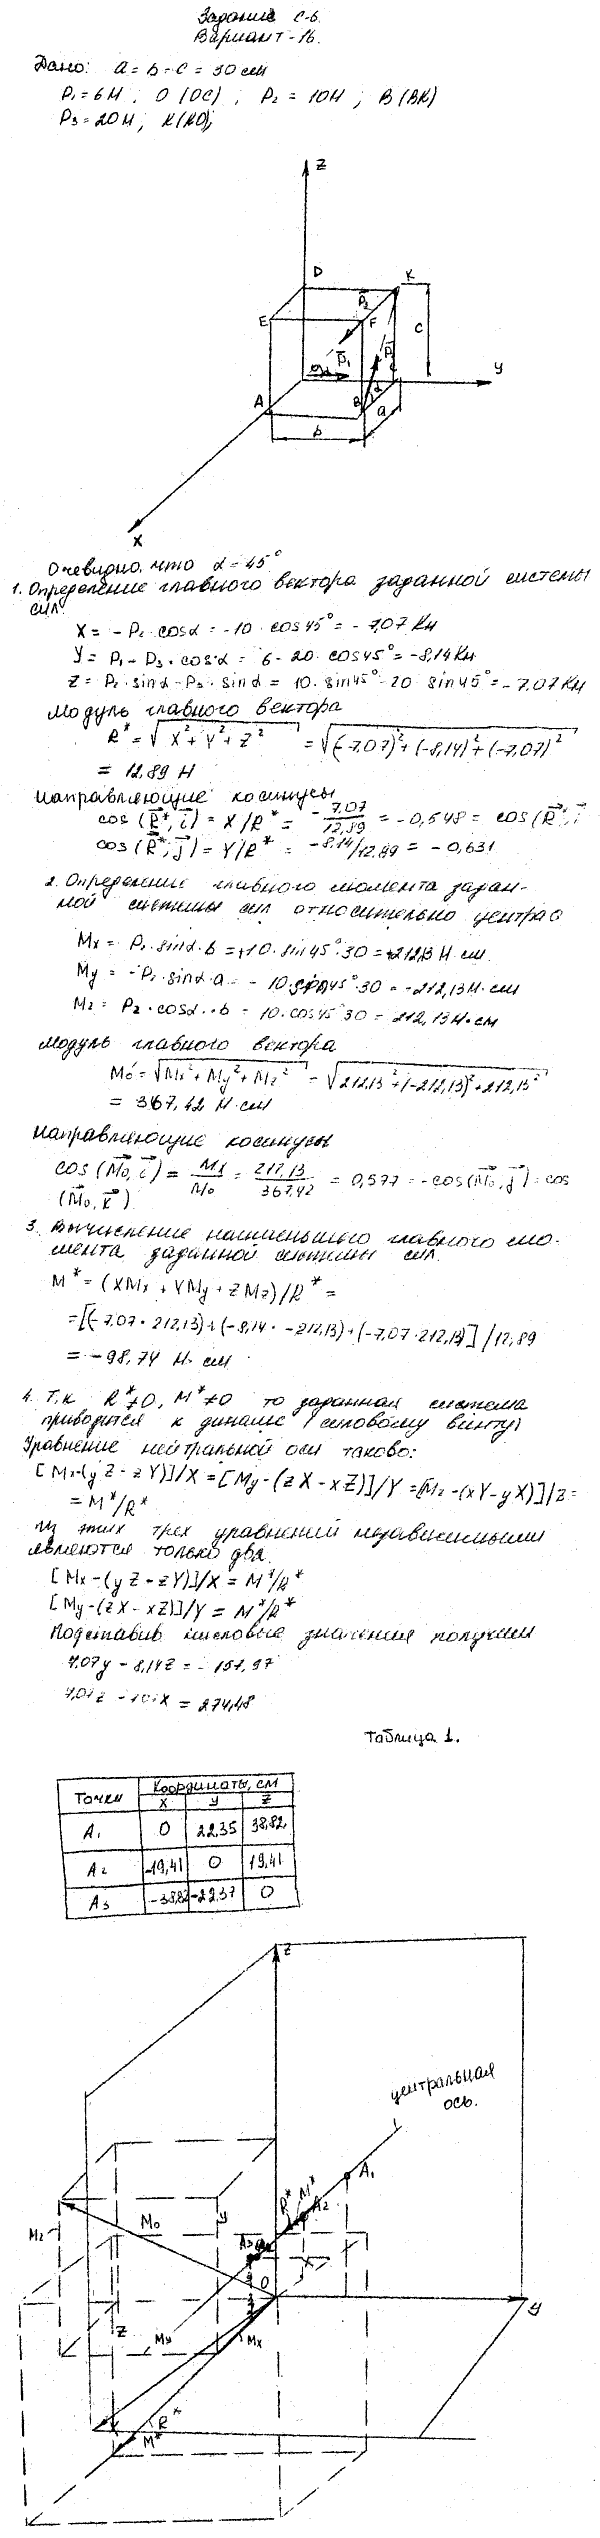 Задание С-6.
Вариант-16.
Дано: a = b = c = 30 см
P₁ = 6 Н ; O (OC) ; P₂ = 10 Н ; B (BK)
P₃ = 20 Н ; K (KO);
Z
D
K
P₂
E
F
C
P₁
P
y
A
B
α
a
b
X
Очевидно, что α = 45°
1. Определение главного вектора заданной системы
сил.
X = - P₂ · cosα = -10 · cos45° = - 7,07 Кн
Y = P₁ - P₃ · cosα = 6 - 20 · cos45° = -8,14 Кн
Z = P₂ · sinα - P₃ · sinα = 10 · sin45° - 20 · sin45° = - 7,07 Кн
Модуль главного вектора
R* = √X² + Y² + Z² = √(-7,07)² + (-8,14)² + (-7,07)²
= 12,89 Н
Направляющие косинусы
cos (R*, i) = X/R* = - 7,07 / 12,89 = -0,548 = cos (R*, i
cos (R*, j) = Y/R* = -8,14/12,89 = - 0,631
2. Определение главного момента задан-
ной системы сил относительно центра O
Mx = P₂ · sinα · b = +10 · sin45° · 30 = +212,13 Н·см
My = -P₂ · sinα · a = - 10 · sin45° · 30 = -212,13 Н·см
Mz = P₂ · cosα · b = 10 · cos45° 30 = 212,13 Н·см
Модуль главного вектора
Mo = √Mx² + My² + Mz² = √212,13² + (-212,13)² + 212,13²
= 367,42 Н·см
Направляющие косинусы
cos (Mo, i) = Mx / Mo = 212,13 / 367,42 = 0,577 = -cos (Mo, j) = cos
(Mo, k)
3. Вычисление наименьшего главного мо-
мента заданной системы сил.
M* = (XMx + YMy + ZMz)/R* =
= [(-7,07 · 212,13) + (-8,14 · -212,13) + (-7,07 · 212,13)] / 12,89
= -98,74 Н·см
4. Т.к R* ≠ 0, M* ≠ 0 то заданная система
приводится к динаме (силовому винту)
Уравнение нейтральной оси таково:
[Mx-(yZ-zY)]/X = [My-(zX-xZ)]/Y = [Mz-(xY-yX)]/Z =
= M*/R*
Из этих трех уравнений независимыми
являются только два.
[Mx-(yZ-zY)]/X = M*/R*
[My-(zX-xZ)]/Y = M*/R*
Подставив числовые значения получим
7,07y - 8,14z = - 157,97
= 274,48
Таблица 1.
Точки Координаты, см
X y Z
A₁ 0 22,35 38,82
A₂ -19,41 0 19,41
A₃ -38,82 -22,37 0
Z
центральная
ось.
A₁
M*
R*
A₂
A₃
y
Mo
Mz
X
O
Z
My
Mx
y
R*
M*